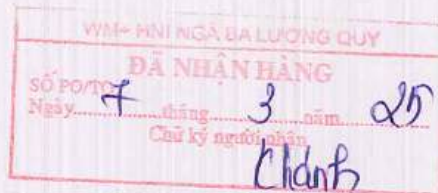 WM+ HNI NGÃ BA LƯƠNG QUY
ĐÃ NHẬN HÀNG
SỐ PO/TO
Ngày 7 tháng 3 năm 25
Chữ ký người nhận
Chánh